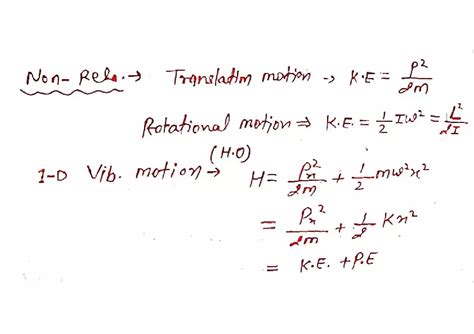 Non-Rel. → Translation motion → K.E = P²/2m
Rotational motion ⇒ K.E. = 1/2 Iω² = L²/2I
(H.O)
1-D Vib. motion → H = Px²/2m + 1/2 mω²x²
= Px²/2m + 1/2 Kx²
= K.E. + P.E